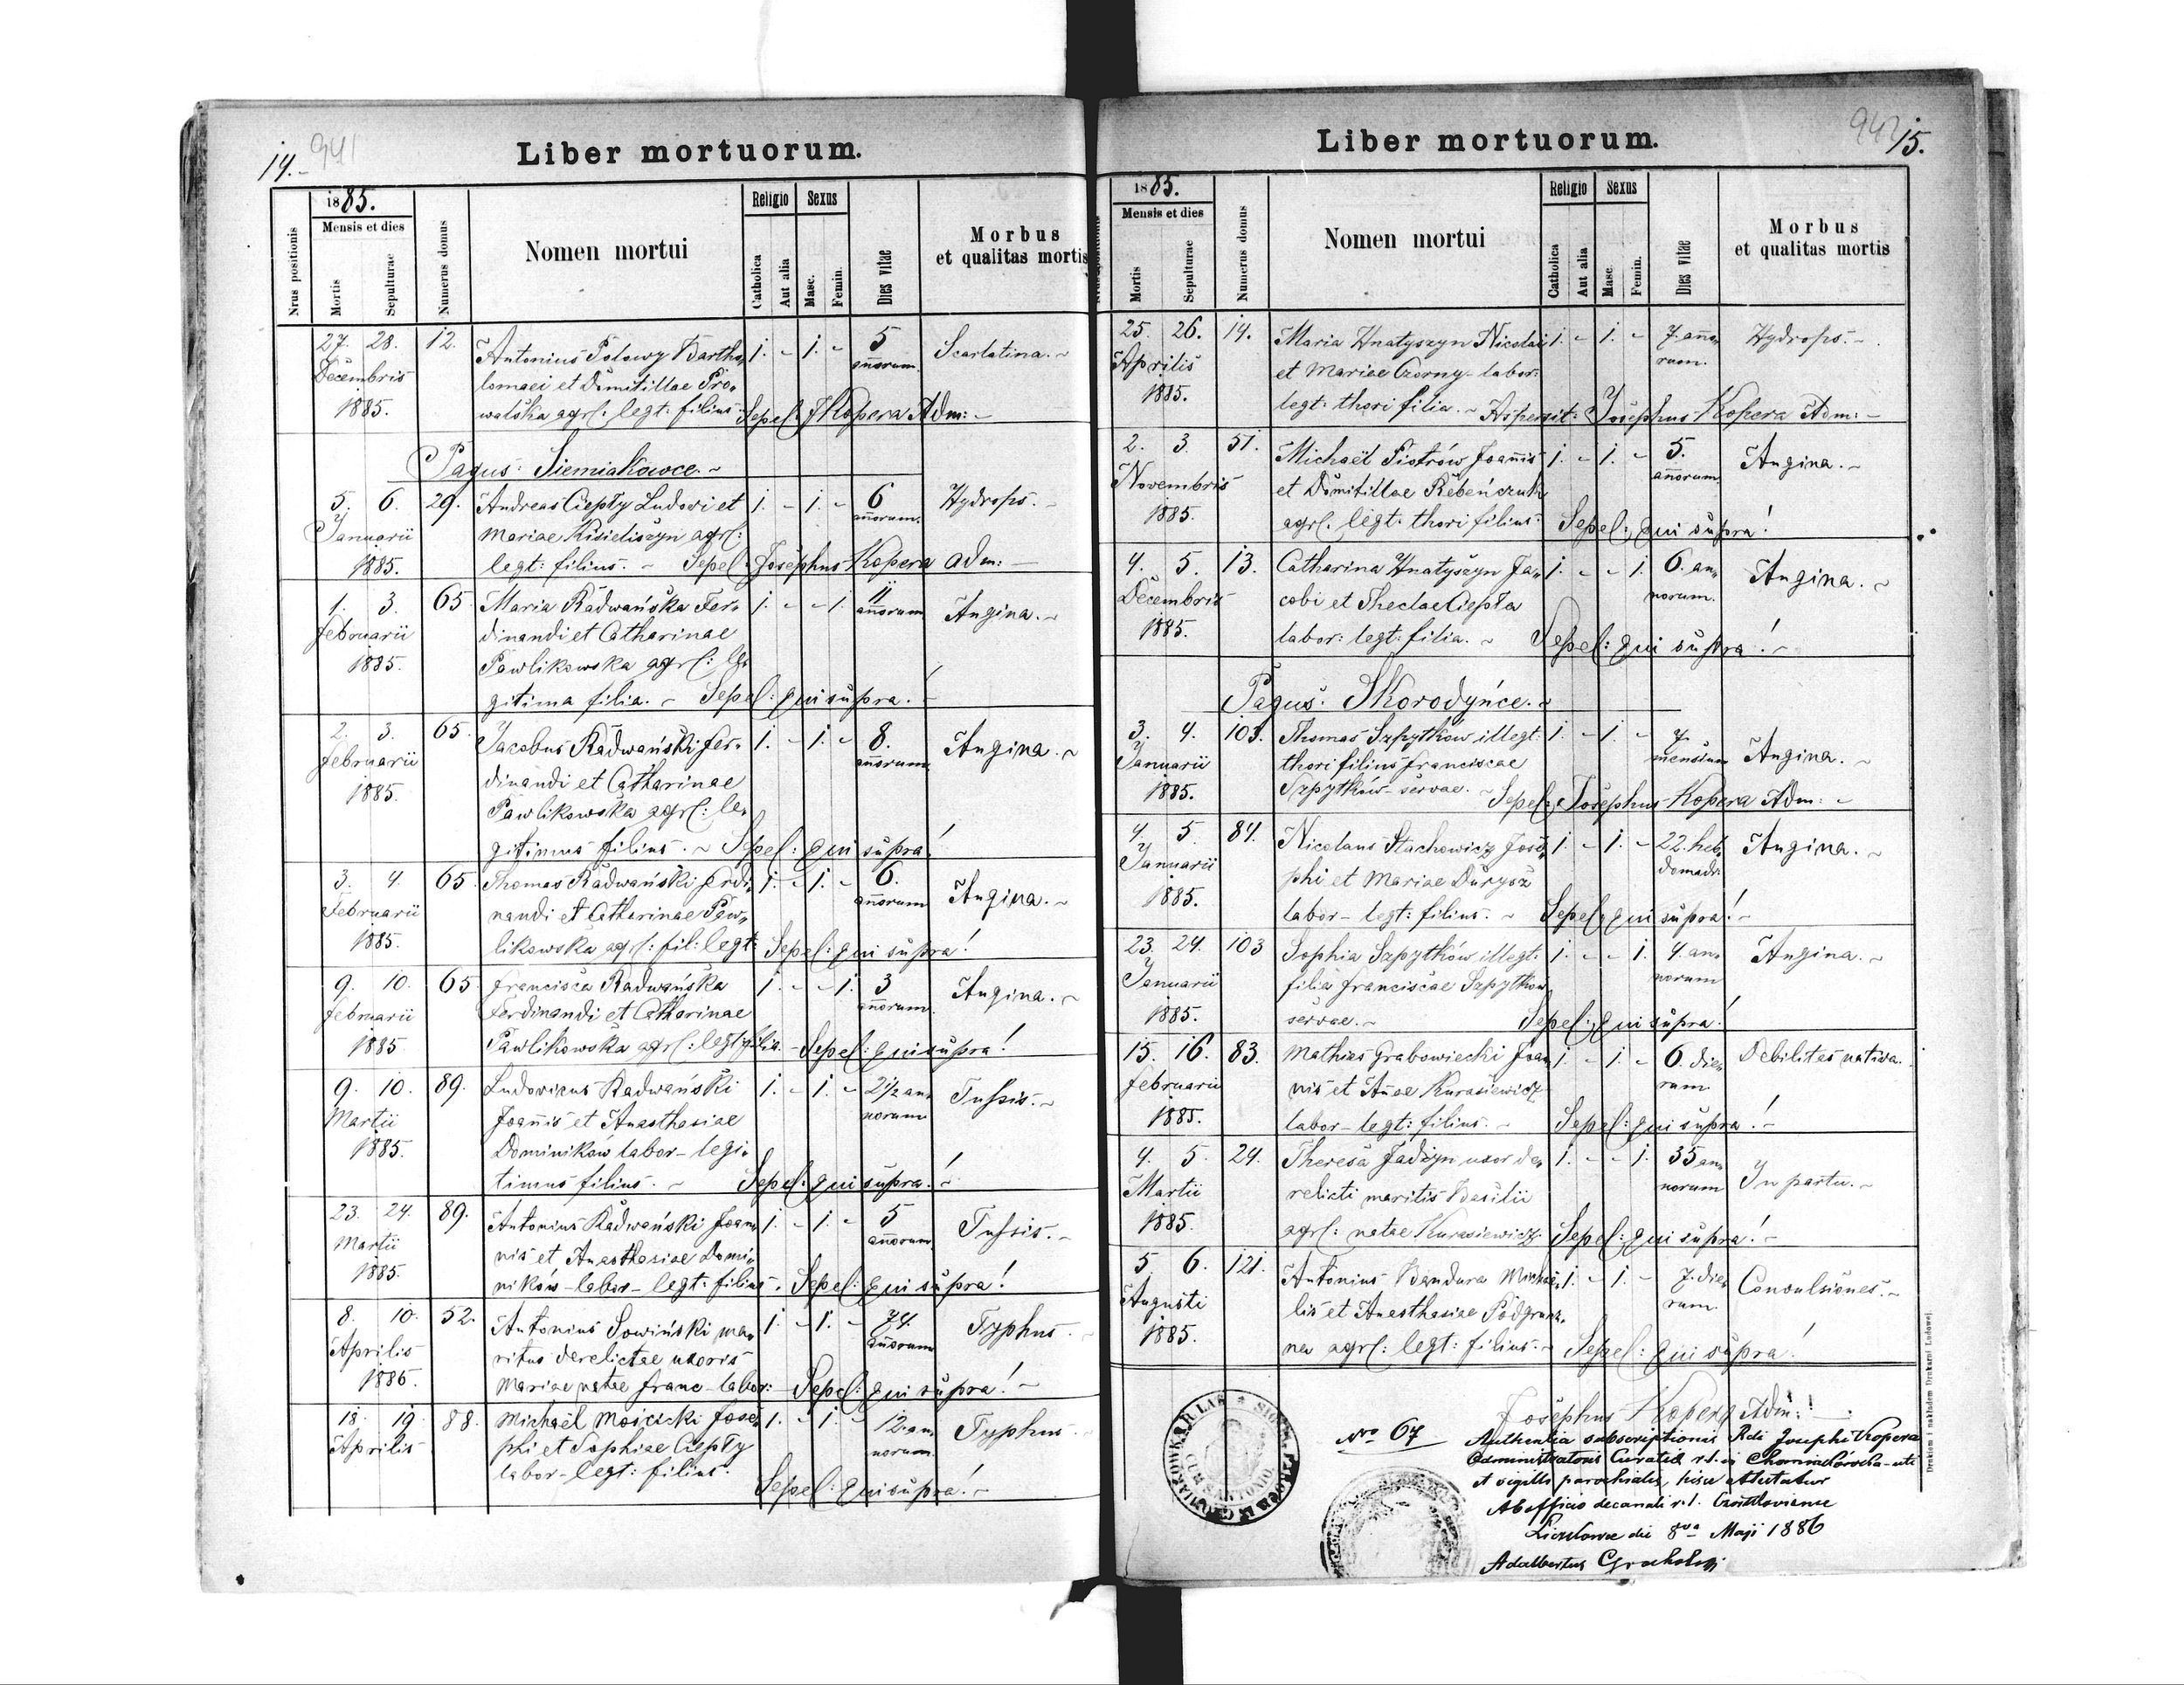 14.- 941
Liber mortuorum.
Nrus positionis
1885.
Mensis et dies
Mortis
Sepulturae
Numerus domus
Nomen mortui
Religio
Catholica
Aut alia
Sexus
Masc.
Femin.
Dies vitae
Morbus
et qualitas mortis
27. 28. 12. Antonius Polowy Bartho„ 1. - 1. - 5 Scarlatina. ~
Decembris lomaei et Domitillae Pro„ annorum.
1885. walska agrl: legt: filius. Sepel: JKopera Adm: -
Pagus: Siemiakowce. ~
5. 6. 29. Andreas Ciepły Ludovi et 1. - 1. - 6 Hydrops. -
Januarii Mariae Kisieliszyn agrl: annorum.
1885. legt: filius. ~ Sepel: Josephus Kopera Adm: -
1. 3. 65 Maria Radwańska Fer„ 1. - - 1. 11 Angina. ~
Februarii dinandi et Catharinae annorum
1885. Pawlikowska agrl: le„
gitima filia. ~ Sepel: qui supra! -
2. 3. 65. Jacobus Radwański Fer„ 1. - 1. - 8. Angina. ~
Februarii dinandi et Catharinae annorum
1885. Pawlikowska agrl: le„
gitimus filius. ~ Sepel: qui supra!
3. 4. 65. Thomas Radwański Ferdi„ 1. - 1. - 6. Angina. ~
Februarii nandi et Catharinae Paw„ annorum
1885. likowska agrl: fil: legt: Sepel: qui supra!
9. 10. 65 Francisca Radwańska 1. - - 1. 3 Angina. ~
Februarii Ferdinandi et Catharinae annorum.
1885 Pawlikowska agrl: legt filia. - Sepel: qui supra!
9. 10. 89. Ludovicus Radwański 1. - 1. - 2 1/2 an„ Tussis. ~
Martii Joannis et Anasthasiae norum
1885. Dominików labor- legi„
timus filius. ~ Sepel: qui supra! -
23. 24. 89. Antonius Radwański Joan„ 1. - 1. - 5 Tussis. -
Martii nis et Anasthasiae Domi„ annorum.
1885. ników-labor- legt: filius. Sepel: qui supra!
8. 10. 52. Antonius Sowiński ma„ 1. - 1. - 74. Typhus. -
Aprilis ritus derelictae uxoris annorum
1885. Mariae natae Franc-labor: - Sepel: qui supra! ~
18. 19. 88. Michaël Moiccki Jose„ 1. - 1. - 12 an„ Typhus. -
Aprilis. phi et Sophiae Ciepły norum.
labor-legt: filius.
Sepel: qui supra! -
942 15.
Liber mortuorum.
1885.
Mensis et dies
Mortis
Sepulturae
Numerus domus
Nomen mortui
Religio
Catholica
Aut alia
Sexus
Masc.
Femin.
Dies vitae
Morbus
et qualitas mortis
25. 26. 14. Maria Hnatyszyn Nicolai 1. - 1. - 7. anno„ Hydrops. -
Aprilis et Mariae Czorny- labor: rum.
1885. legt: thori filia. ~ Aspersit: Josephus Kopera Adm: -
2. 3. 51. Michaël Piotrów Joannis 1. - 1. - 5. Angina. ~
Novembris et Domitillae Rebeńczuk annorum
1885. agrl. legt: thori filius. Sepel: qui supra!
4. 5. 13. Catharina Hnatyszyn Ja„ 1. - - 1. 6. an„ Angina. ~
Decembris cobi et Theclae Ciepła norum.
1885. labor: legt: filia. ~ Sepel: qui supra! -
Pagus: Skorodyńce. ~
3. 4. 103. Thomas Szpytków illegt: 1. - 1. - 7. Angina. ~
Januarii thori filius Franciscae mensium
1885. Szpytków- servae. ~ Sepel: Josephus Kopera Adm: ~
4. 5. 84. Nicolaus Stachowicz Jose„ 1. - 1. - 22. heb„ Angina. ~
Januarii phi et Mariae Durysz domadr:
1885. labor- legt: filius. ~ Sepel: qui supra! -
23. 24. 103 Sophia Szpytków illegt: 1. - - 1. 4. an„ Angina. ~
Januarii filia Franciscae Szpytków norum
1885. servae. ~ Sepel: qui supra!
15. 16. 83. Mathias Grabowiecki Joan„ 1. - 1. - 6. die„ Debilitas nativa.
Februarii nis et Annae Kurasiewicz rum
1885. labor- legt: filius. ~ Sepel: qui supra! -
4. 5. 24. Theresa Jadzyn uxor de„ 1. - - 1. 35 an„ In partu. ~
Martii relicti maritis Basilii norum
1885. agrl: natae Kurasiewicz. Sepel: qui supra! -
5. 6. 121. Antonius Bandura Michaë„ 1. - 1. - 7. die„ Convulsiones. ~
Augusti lis et Anasthasiae Podgrun„ rum.
1885. na agrl: legt: filius. ~ Sepel: qui supra!
Josephus Kopera Adm:!
Nro 67
Authentia subscriptionis Rdi Josephi Kopera
Administratoris Curatiae r.l. in Chomiakówka uti
et sigilli parochialis, hisce attestatur
Ab officio decanali r.l.
die 8va Maji 1886
Adalbertus
Drukiem i nakładem Drukarni Ludowej